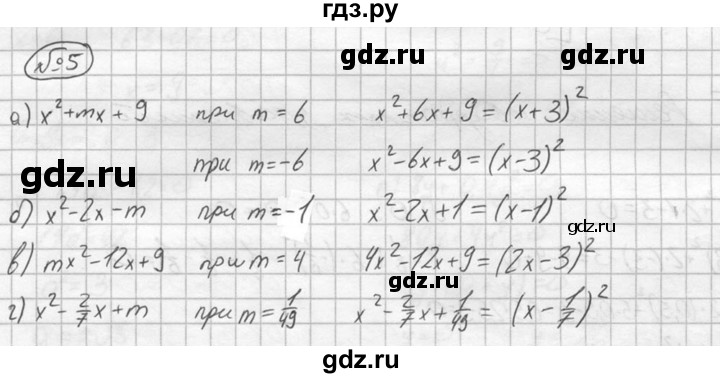 гдз.ру
№5
gdz.ru
а) x²+mx+9 при m=6 x²+6x+9=(x+3)²
gdz.ru
при m=-6 x²-6x+9=(x-3)²
gdz.ru
б) x²-2x-m при m=-1 x²-2x+1=(x-1)²
gdz.ru
в) mx²-12x+9 при m=4 4x²-12x+9=(2x-3)²
gdz.ru
г) x²-2/7x+m при m=1/49 x²-2/7x+1/49=(x-1/7)²
gdz.ru